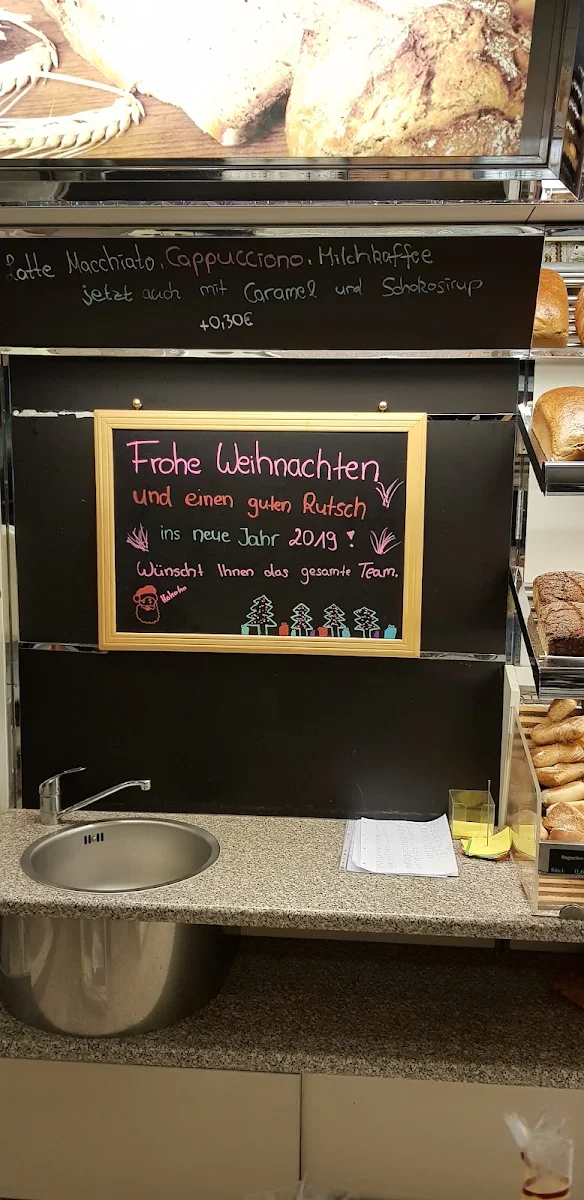 Latte Macchiato, Cappucciono, Milchkaffee
jetzt auch mit Caramel und Schokosirup
+0,30€
Frohe Weihnachten
und einen guten Rutsch
ins neue Jahr 2019!
Wünscht Ihnen das gesamte Team.
Hohoho